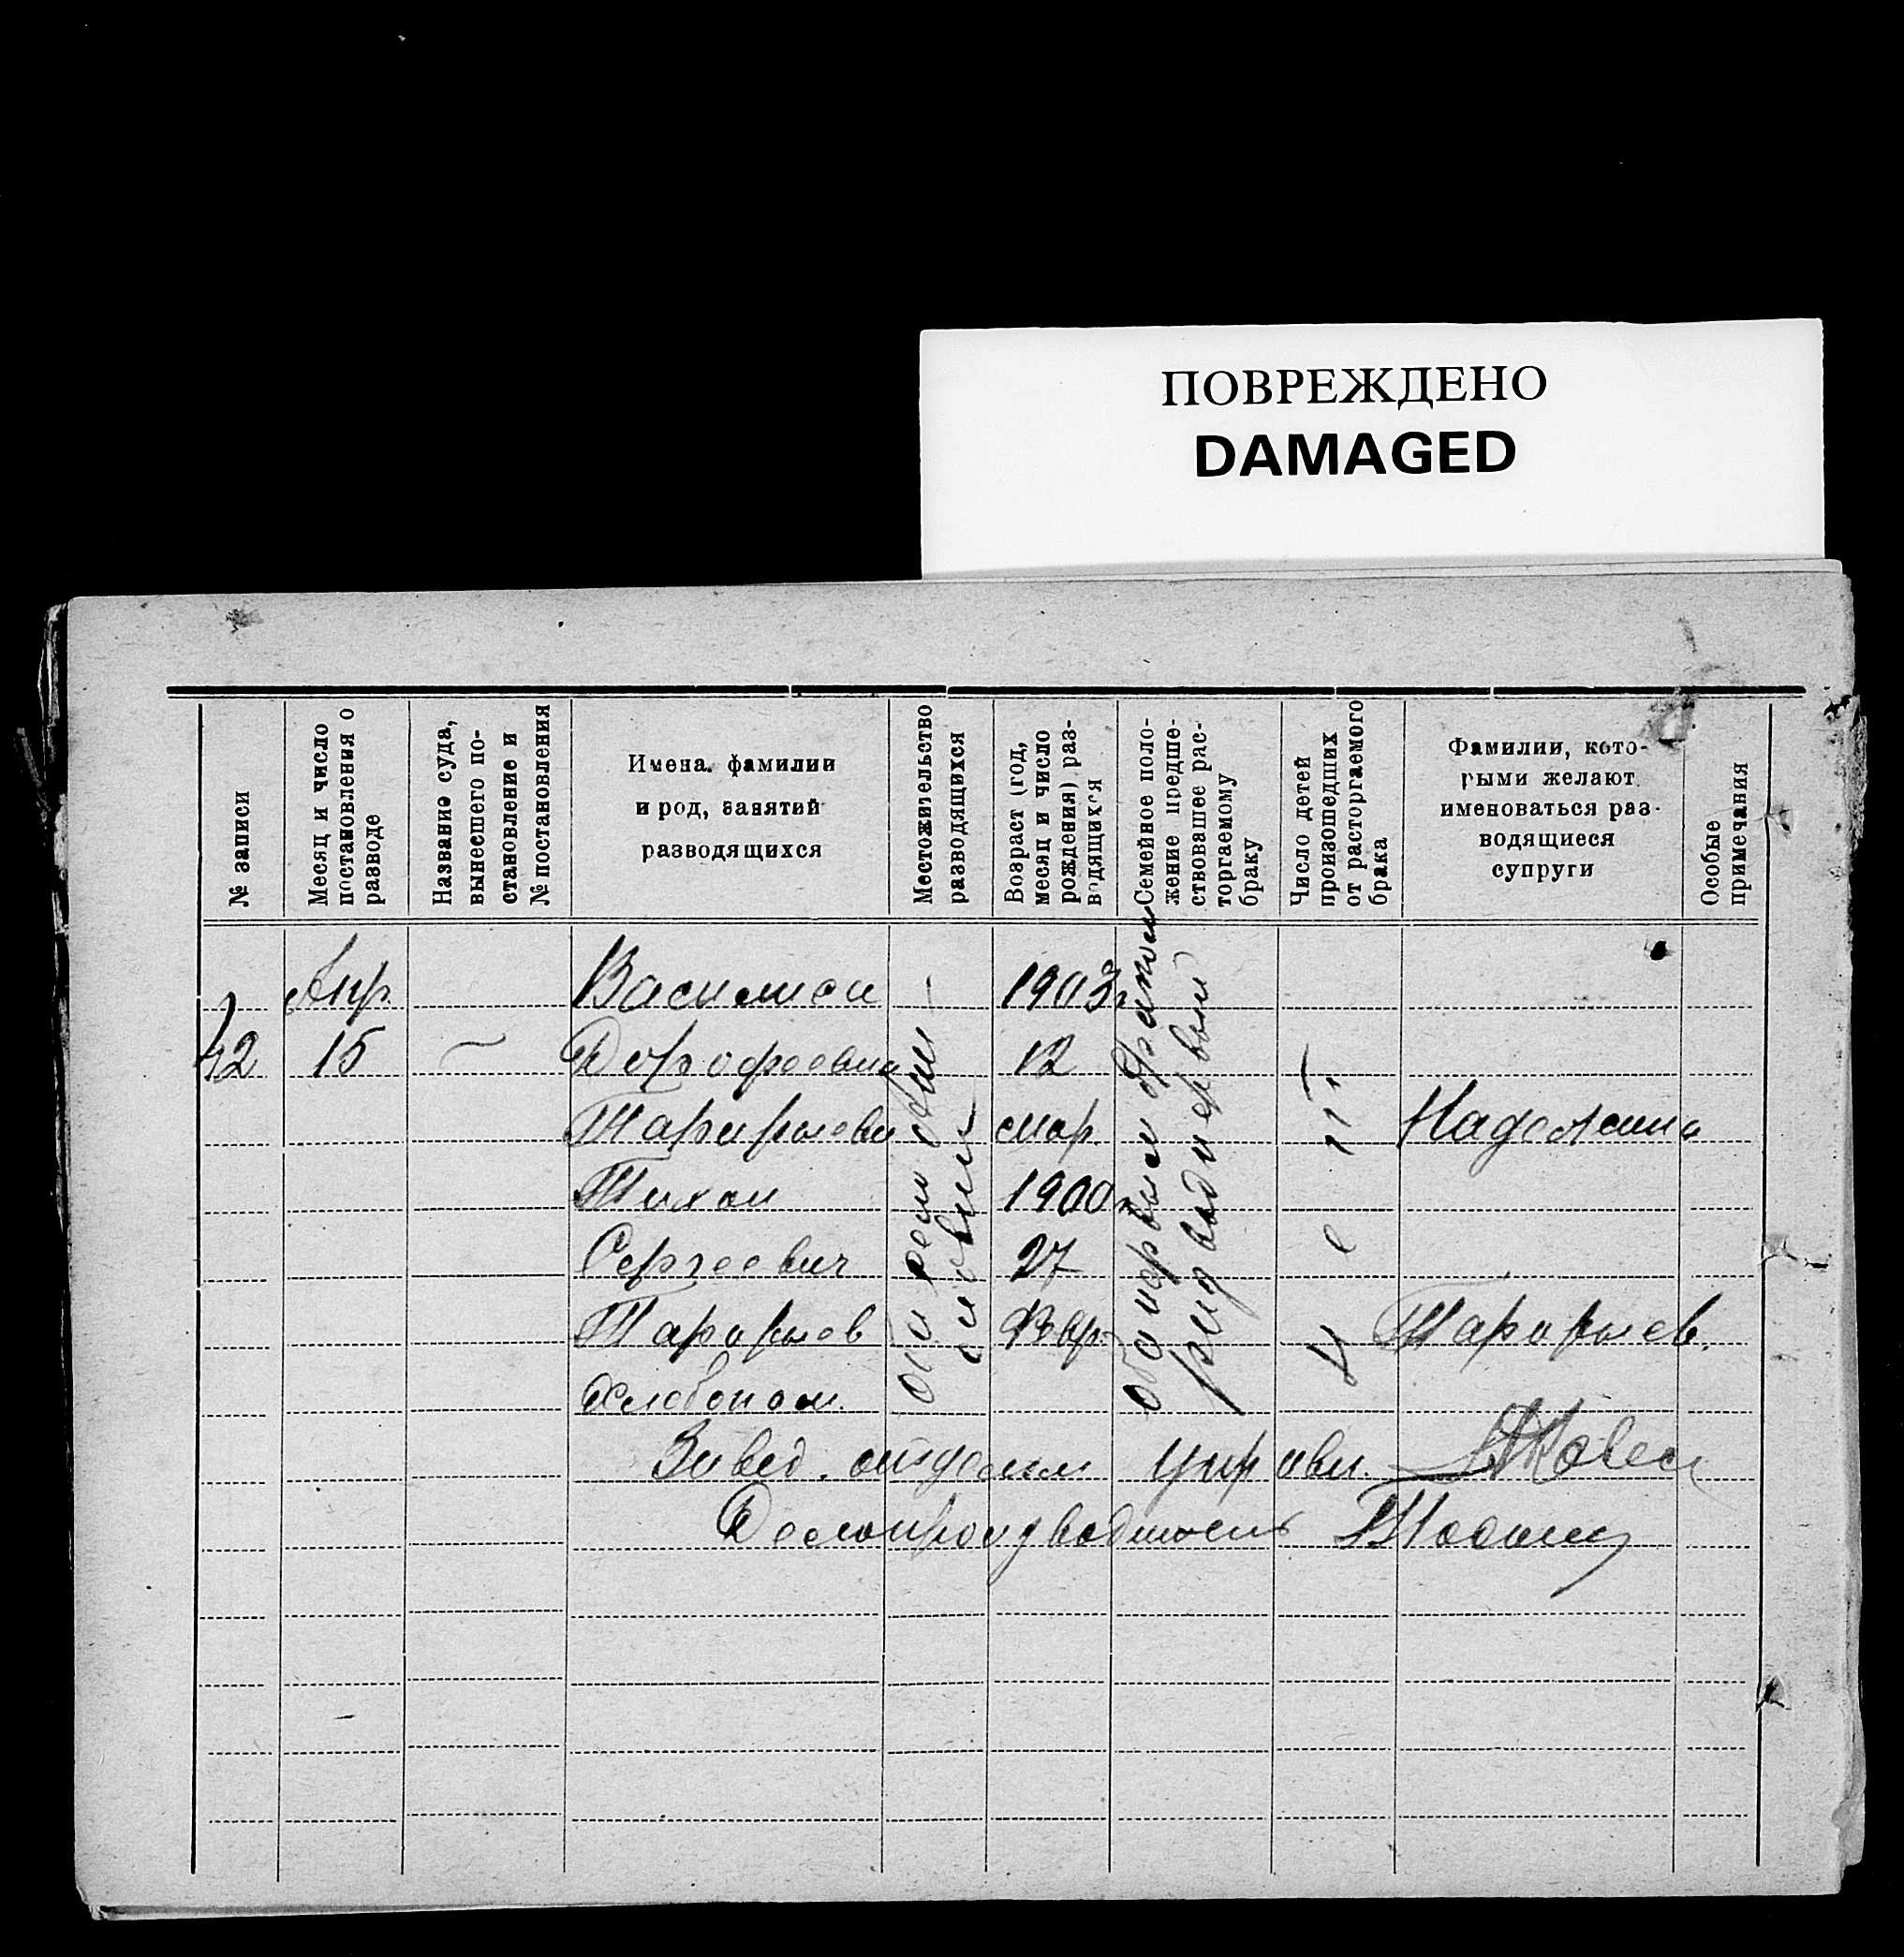 ПОВРЕЖДЕНО
DAMAGED
№ записи
Месяц и число
постановления о
разводе
Название суда,
вынесшего по-
становление и
№ постановления
Имена, фамилии
и род, занятий
разводящихся
Местожительство
разводящихся
Возраст (год,
месяц и число
рождения) раз-
водящихся
Семейное поло-
жение предше-
ствовавшее рас-
торгаемому
браку
Число детей
произошедших
от расторгаемого
брака
Фамилии, кото-
рыми желают
именоваться раз-
водящиеся
супруги
Особые
примечания
Апр. Василиса 1903 г.
42 15 Дорофеевна 12
мар.
Тихон 1900 г.
Сергеевич 27
Февр.
Хлебопаш.
оба
оба первым браком
развод первый
нет
Завед. отделом управл.
Делопроизводитель